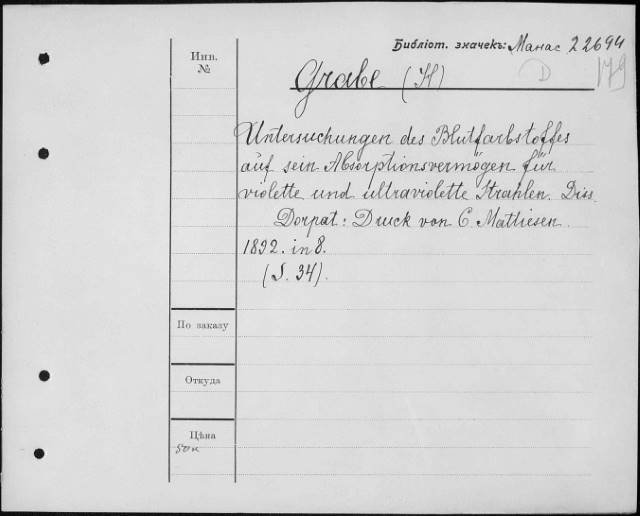 Библіот. значекъ: Манас 22694
Инв.
№
Grabe (H)
D
179
Untersuchungen des Blutfarbstoffes
auf sein Absorptionsvermögen für
violette und ultraviolette Strahlen. Diss.
Dorpat: Druck von C. Mattiesen.
1892. in 8.
(S. 34).
По заказу
Откуда
Цѣна
50к